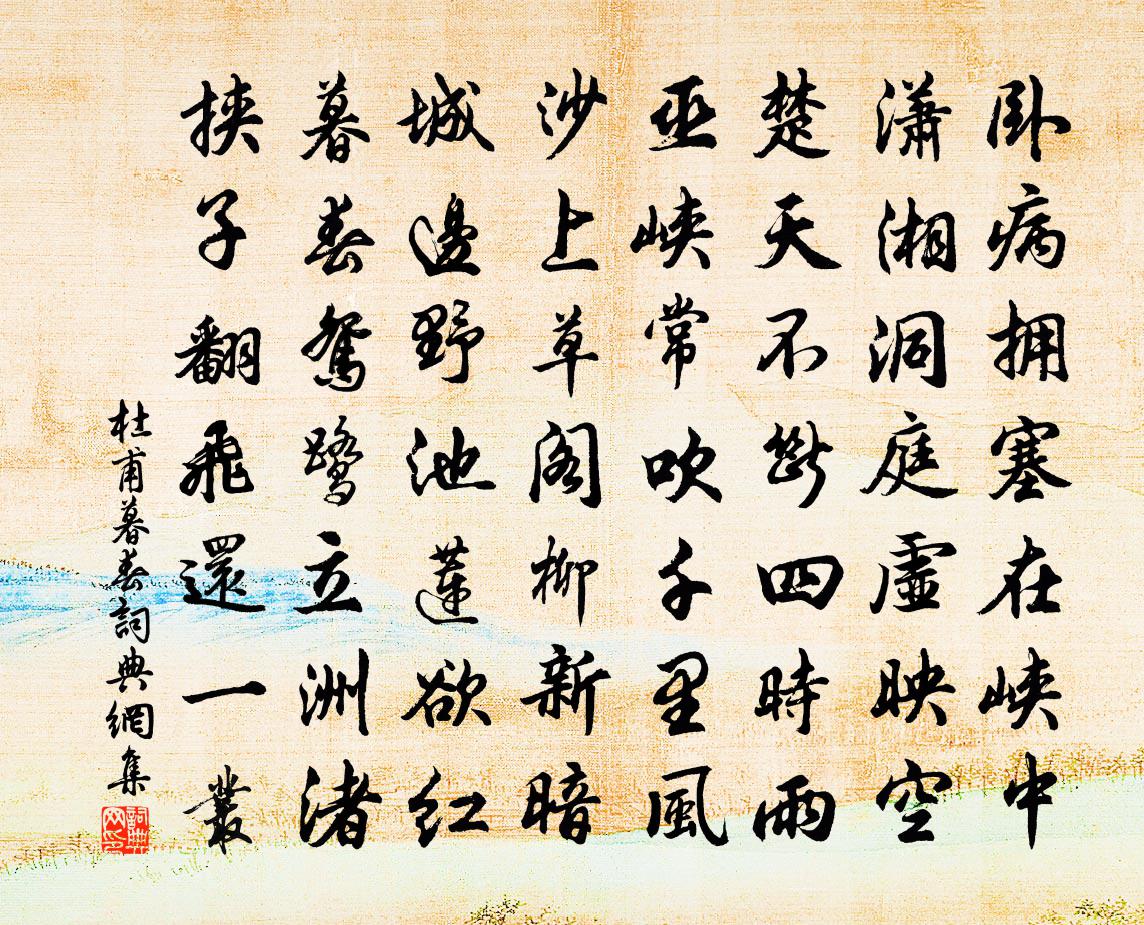 卧病拥塞在峽中
瀟湘洞庭虛映空
楚天不斷四時雨
巫峽常吹千里風
沙上草閣柳新暗
城邊野池蓮欲紅
暮春鴛鷺立洲渚
挾子翻飛還一叢
杜甫暮春詞典網集